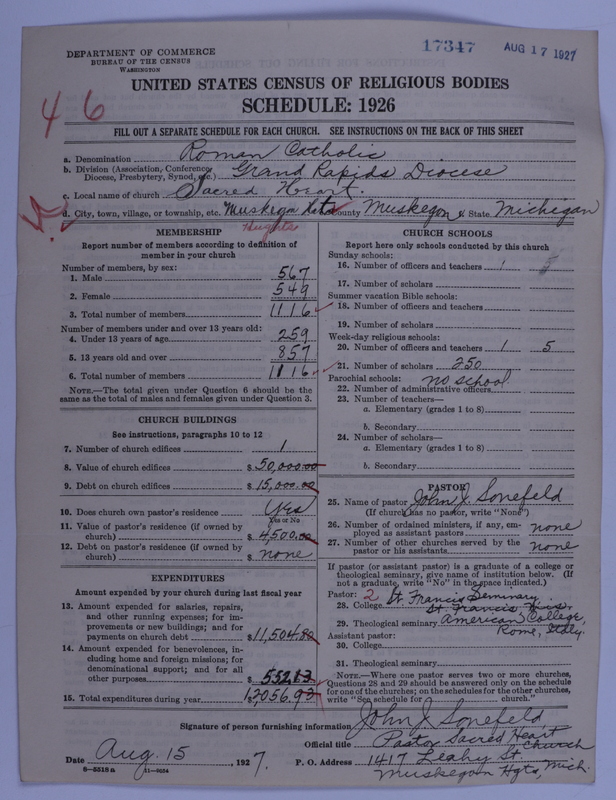 17347
AUG 17 1927
DEPARTMENT OF COMMERCE
BUREAU OF THE CENSUS
WASHINGTON
UNITED STATES CENSUS OF RELIGIOUS BODIES
SCHEDULE: 1926
46
FILL OUT A SEPARATE SCHEDULE FOR EACH CHURCH. SEE INSTRUCTIONS ON THE BACK OF THIS SHEET
a. Denomination Roman Catholic
b. Division (Association, Conference, Diocese, Presbytery, Synod, etc.) Grand Rapids Diocese
c. Local name of church Sacred Heart.
d. City, town, village, or township, etc. Muskegon Heights County Muskegon State Michigan
MEMBERSHIP
Report number of members according to definition of
member in your church
Number of members, by sex:
1. Male 567
2. Female 549
3. Total number of members 1116
Number of members under and over 13 years old:
4. Under 13 years of age 259
5. 13 years old and over 857
6. Total number of members 1116
NOTE.—The total given under Question 6 should be the
same as the total of males and females given under Question 3.
CHURCH BUILDINGS
See instructions, paragraphs 10 to 12
7. Number of church edifices 1
8. Value of church edifices $50,000.00
9. Debt on church edifices $15,000.00
10. Does church own pastor's residence Yes
Yes or No
11. Value of pastor's residence (if owned by
church) $4500.00
12. Debt on pastor's residence (if owned by
church) $none
EXPENDITURES
Amount expended by your church during last fiscal year
13. Amount expended for salaries, repairs,
and other running expenses; for im-
provements or new buildings; and for
payments on church debt $11,504.80
14. Amount expended for benevolences, in-
cluding home and foreign missions; for
denominational support; and for all
other purposes $552.13
15. Total expenditures during year $12056.93
CHURCH SCHOOLS
Report here only schools conducted by this church
Sunday schools:
16. Number of officers and teachers 1 5
17. Number of scholars
Summer vacation Bible schools:
18. Number of officers and teachers
19. Number of scholars
Week-day religious schools:
20. Number of officers and teachers 1 5
21. Number of scholars 250
Parochial schools: no school
22. Number of administrative officers
23. Number of teachers—
a. Elementary (grades 1 to 8)
b. Secondary
24. Number of scholars—
a. Elementary (grades 1 to 8)
b. Secondary
PASTOR
25. Name of pastor John J. Sonefeld
(If church has no pastor, write "None")
26. Number of ordained ministers, if any, em-
ployed as assistant pastors none
27. Number of other churches served by the
pastor or his assistants none
If pastor (or assistant pastor) is a graduate of a college or
theological seminary, give name of institution below. (If
not a graduate, write "No" in the space indicated.)
Pastor: 2 St. Francis Seminary.
28. College St. Francis Wis.
29. Theological seminary American College,
Rome, Italy.
Assistant pastor:
30. College
31. Theological seminary
NOTE.—Where one pastor serves two or more churches,
Questions 28 and 29 should be answered only on the schedule
for one of the churches; on the schedules for the other churches,
write "See schedule for church."
Signature of person furnishing information John J. Sonefeld
Official title Pastor Sacred Heart Church
Date Aug. 15, 1927. P. O. Address 1417 Leahy St.
Muskegon Hgts, Mich.
8—5518a 11—9654